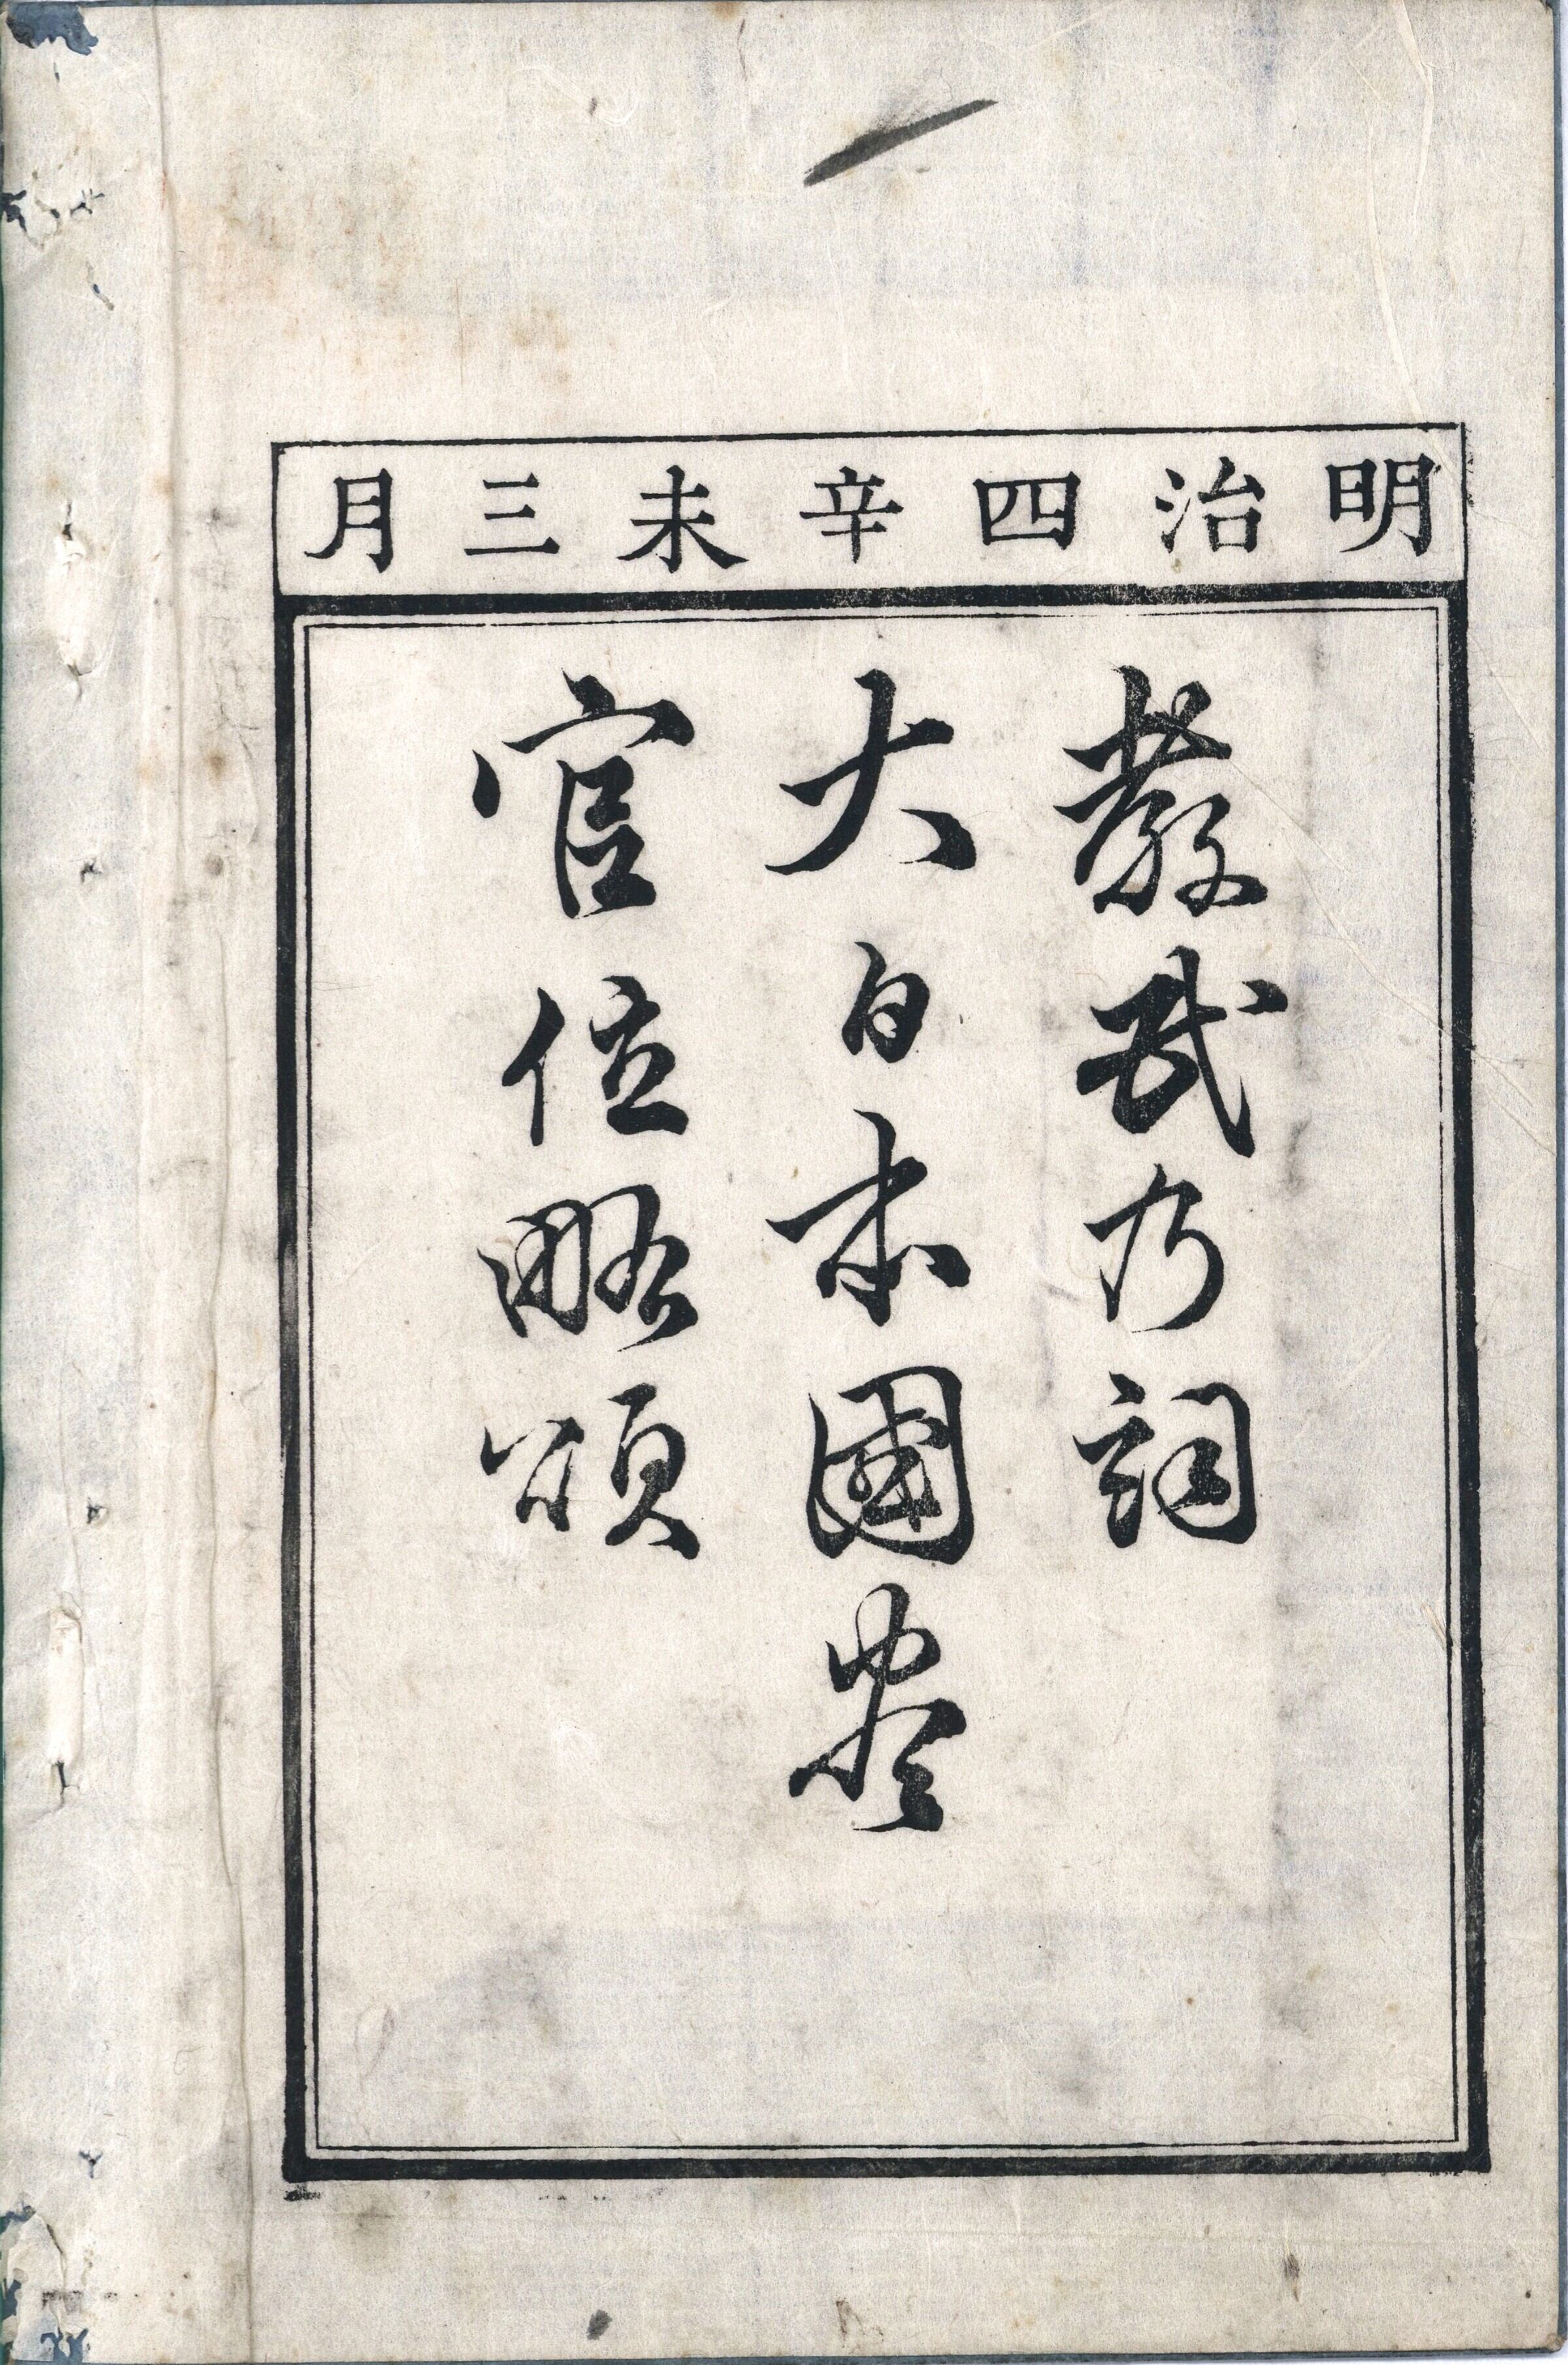 明治四辛未三月
教武乃詞
大日本國盡
官位略頌